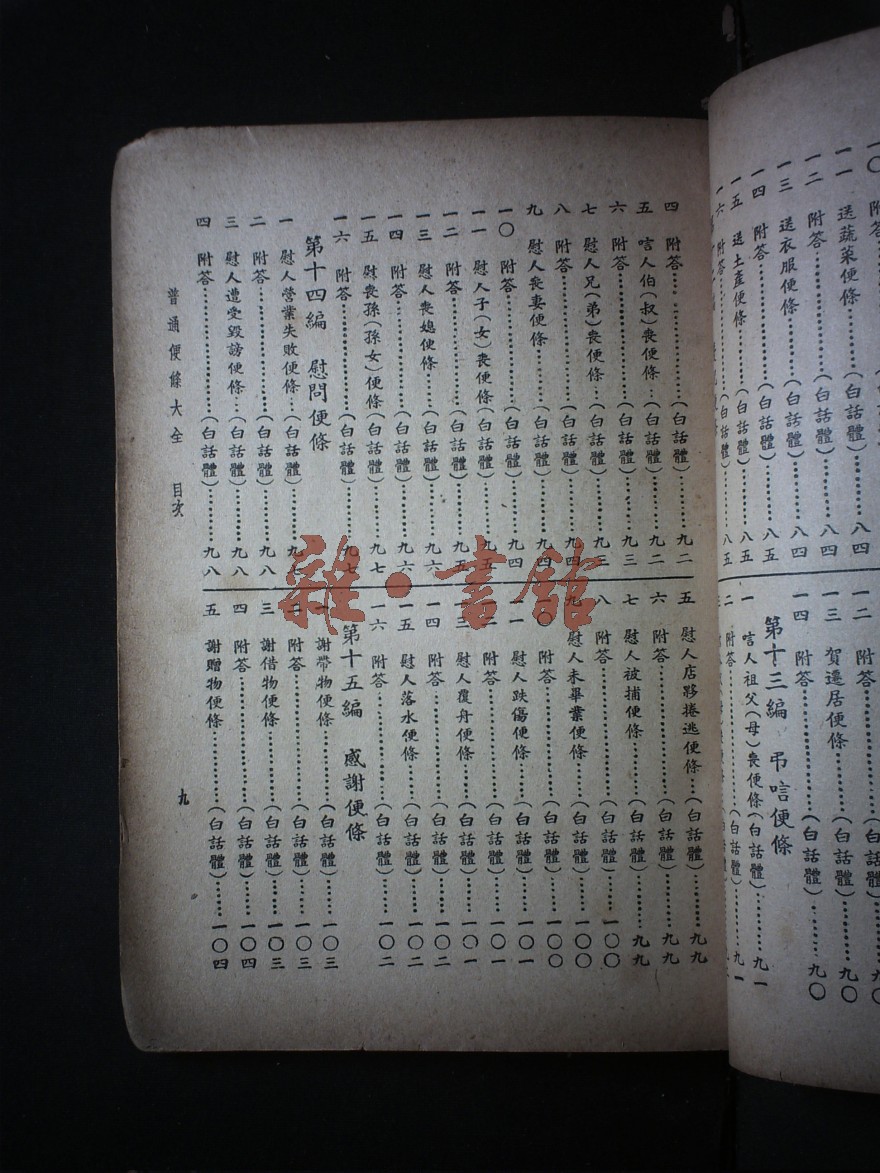 一〇 附答
一一 送蔬菜便條……(白話體)……八四
一二 附答……(白話體)……八四
一三 送衣服便條……(白話體)……八四
一四 附答……(白話體)……八五
一五 送土產便條……(白話體)……八五
一六 附答……(白話體)
一二 附答……(白話體)……九〇
一三 賀遷居便條……(白話體)……九〇
一四 附答……(白話體)……九〇
第十三編 弔唁便條
一 唁人祖父(母)喪便條(白話體)……九一
二 附答……(白話體)……九一
四 附答……(白話體)……九二
五 唁人伯(叔)喪便條…(白話體)……九二
六 附答……(白話體)……九三
七 慰人兄(弟)喪便條…(白話體)……九三
八 附答……(白話體)……九四
九 慰人喪妻便條……(白話體)……九四
一〇 附答……(白話體)……九四
一一 慰人子(女)喪便條(白話體)……九五
一二 附答……(白話體)……九五
一三 慰人喪媳便條……(白話體)……九六
一四 附答……(白話體)……九六
一五 慰喪孫(孫女)便條(白話體)……九七
一六 附答……(白話體)……九七
第十四編 慰問便條
一 慰人營業失敗便條…(白話體)……九七
二 附答……(白話體)……九八
三 慰人遭受毀謗便條…(白話體)……九八
四 附答……(白話體)……九八
五 慰人店夥捲逃便條…(白話體)……九九
六 附答……(白話體)……九九
七 慰人被捕便條……(白話體)……九九
八 附答……(白話體)……一〇〇
九 慰人未畢業便條……(白話體)……一〇〇
一〇 附答……(白話體)……一〇〇
一一 慰人跌傷便條……(白話體)……一〇一
一二 附答……(白話體)……一〇一
一三 慰人覆舟便條……(白話體)……一〇一
一四 附答……(白話體)……一〇二
一五 慰人落水便條……(白話體)……一〇二
一六 附答……(白話體)……一〇二
第十五編 感謝便條
一 謝帶物便條……(白話體)……一〇三
二 附答……(白話體)……一〇三
三 謝借物便條……(白話體)……一〇三
四 附答……(白話體)……一〇四
五 謝贈物便條……(白話體)……一〇四
普通便條大全 目次
九
雜·書館